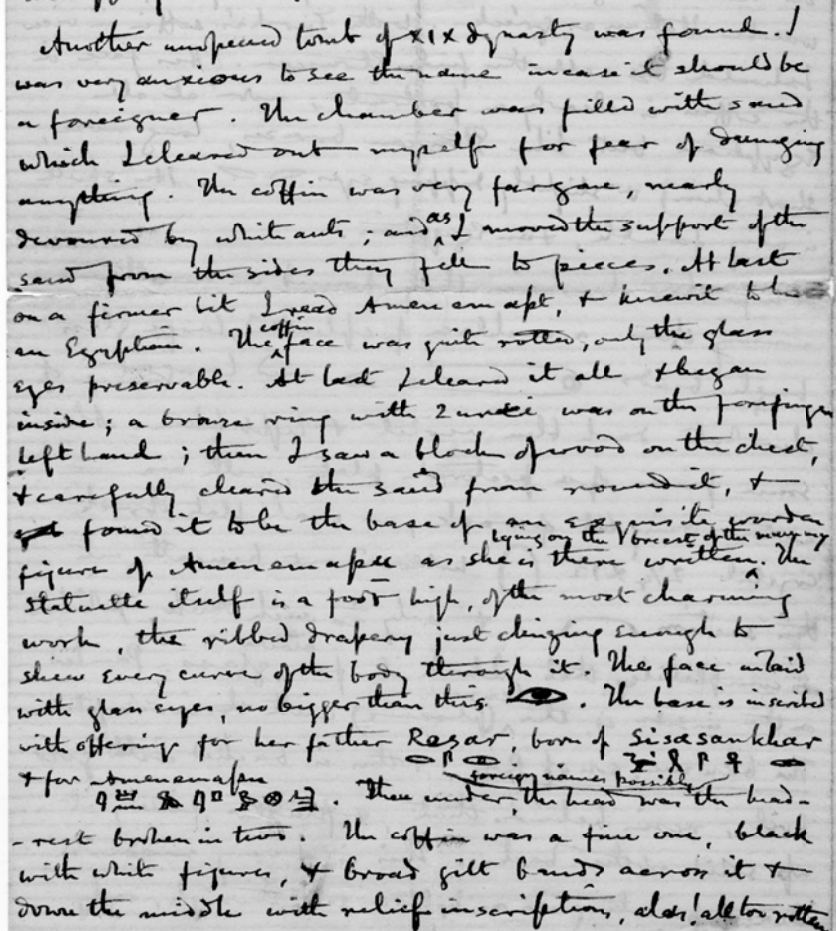 Another unopened tomb of XIX dynasty was found. I
was very anxious to see the name in case it should be
a foreigner. The chamber was filled with sand
which I cleared out myself for fear of damaging
anything. The coffin was very far gone, nearly
devoured by white ants; and as I moved the support of the
sand from the sides they fell to pieces. At last
on a firmer bit I read Amenemapt, & knew it to be
an Egyptian. The coffin face was quite rotted, only the glass
eyes preservable. At last I cleared it all & began
inside; a bronze ring with 2 uraei was on the forefinger
left hand; then I saw a block of wood on the chest,
& carefully cleared the sand from round it, &
found it to be the base of an exquisite wooden
lying on the breast of the mummy
figure of Amenemapt as she is there written. The
statuette itself is a foot high, of the most charming
work, the ribbed drapery just clinging enough to
shew every curve of the body through it. The face inlaid
with glass eyes, no bigger than this 👁. The base is inscribed
with offerings for her father Resar, born of Sisesankhar
foreign names possibly
& for Amenemapu
. Then under the head was the head-
-rest broken in two. The coffin was a fine one, black
with white figures, & broad gilt bands across it &
down the middle with relief inscriptions, alas! all too rotten